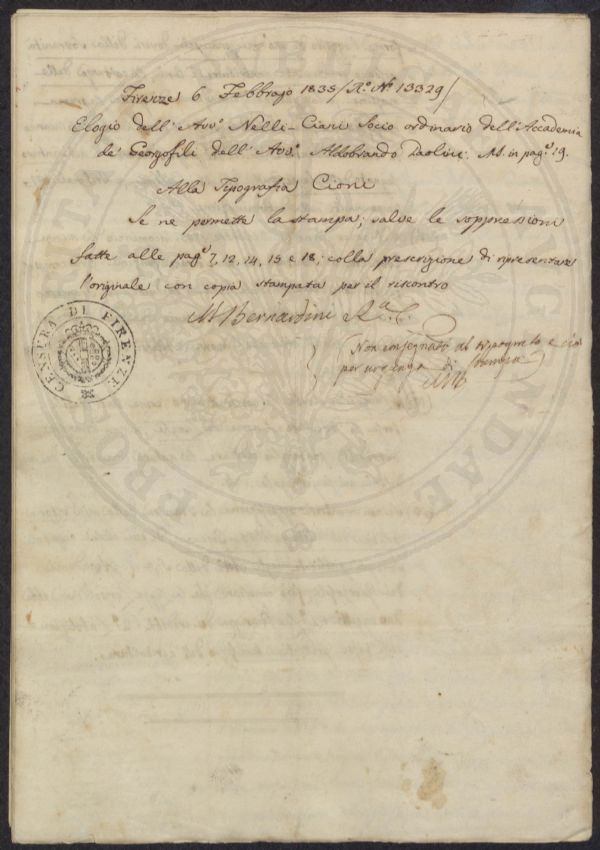 Firenze 6 Febbrajo 1835 / Rº Nº 13329 /
Elogio dell' Avvº Nelli-Ciani Socio ordinario dell'Accademia
de' Georgofili dell' Avvº Aldobrando Paolini. MS. in pagº 19.
Alla Tipografia Cioni
Se ne permette la stampa; salve le soppressioni
fatte alle pagº 7, 12, 14, 15 e 18; colla prescrizione di ripresentare
l'originale con copia stampata per il riscontro
M Bernardini Rº C.
(Non consegnato al tipografo e
per urgenza di
MB
CENSURA DI FIRENZE